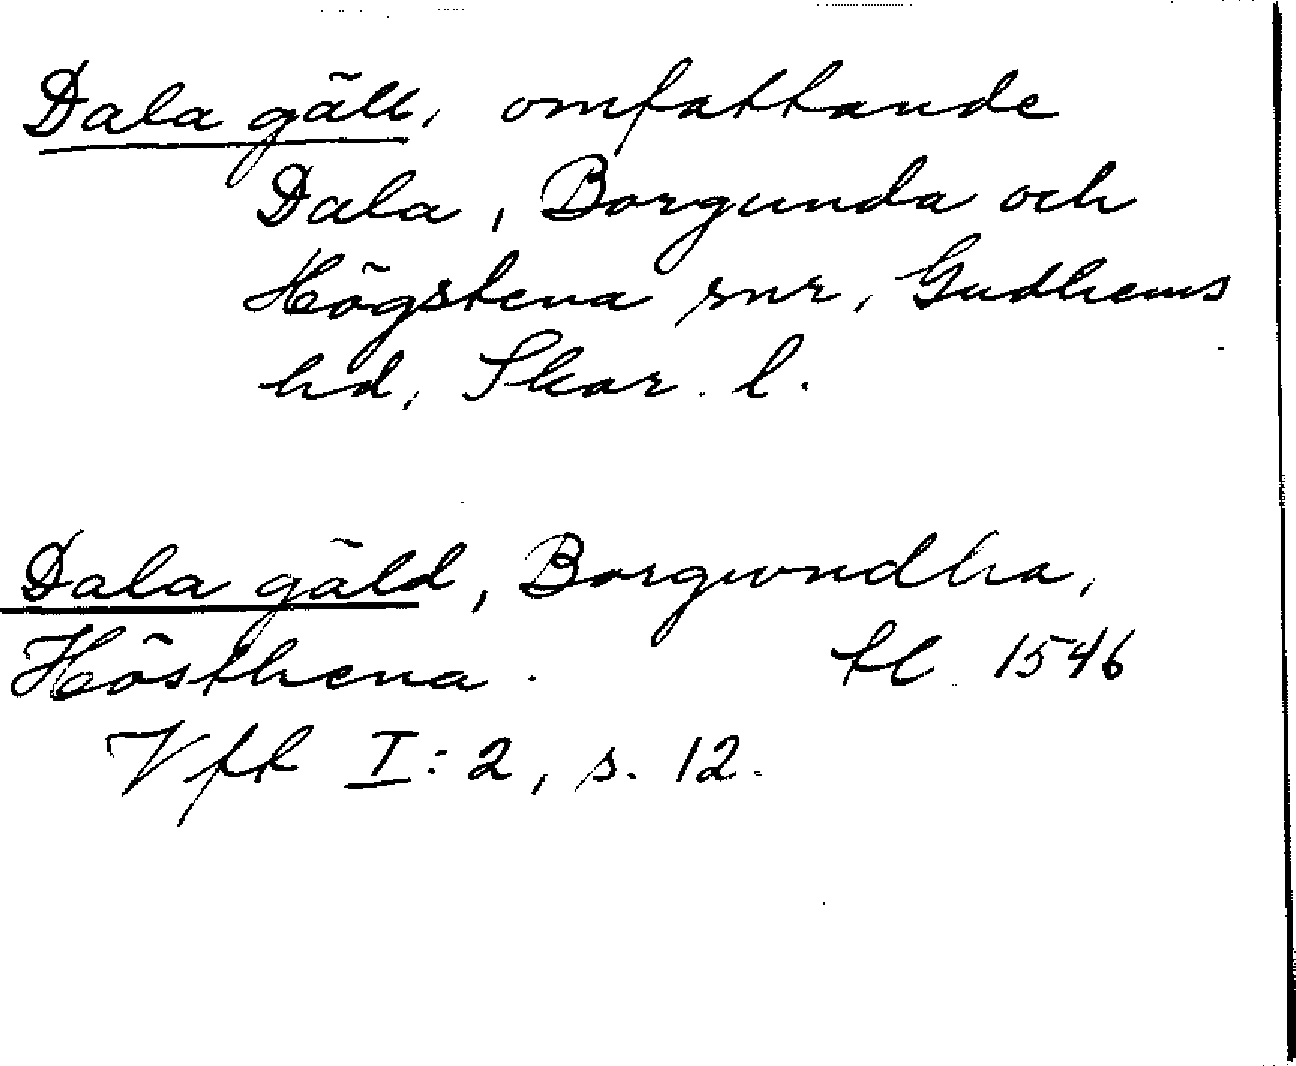 Dala gäll, omfattande
Dala, Borgunda och
Högstena snr, Gudhems
hd, Skar. l.
Dala gäld, Borgwndha,
Hösthena. tl 1546
Vft I:2, s. 12.